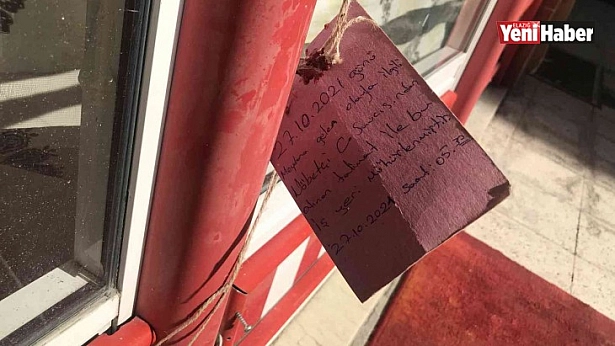 ELAZIĞ
YeniHaber
27.10.2021 günü
Meydana gelen olayla ilgili
Nöbetçi C. Savcısından
Alınan talimat ile bu
İş yeri mühürlenmiştir.
27.10.2021 saat: